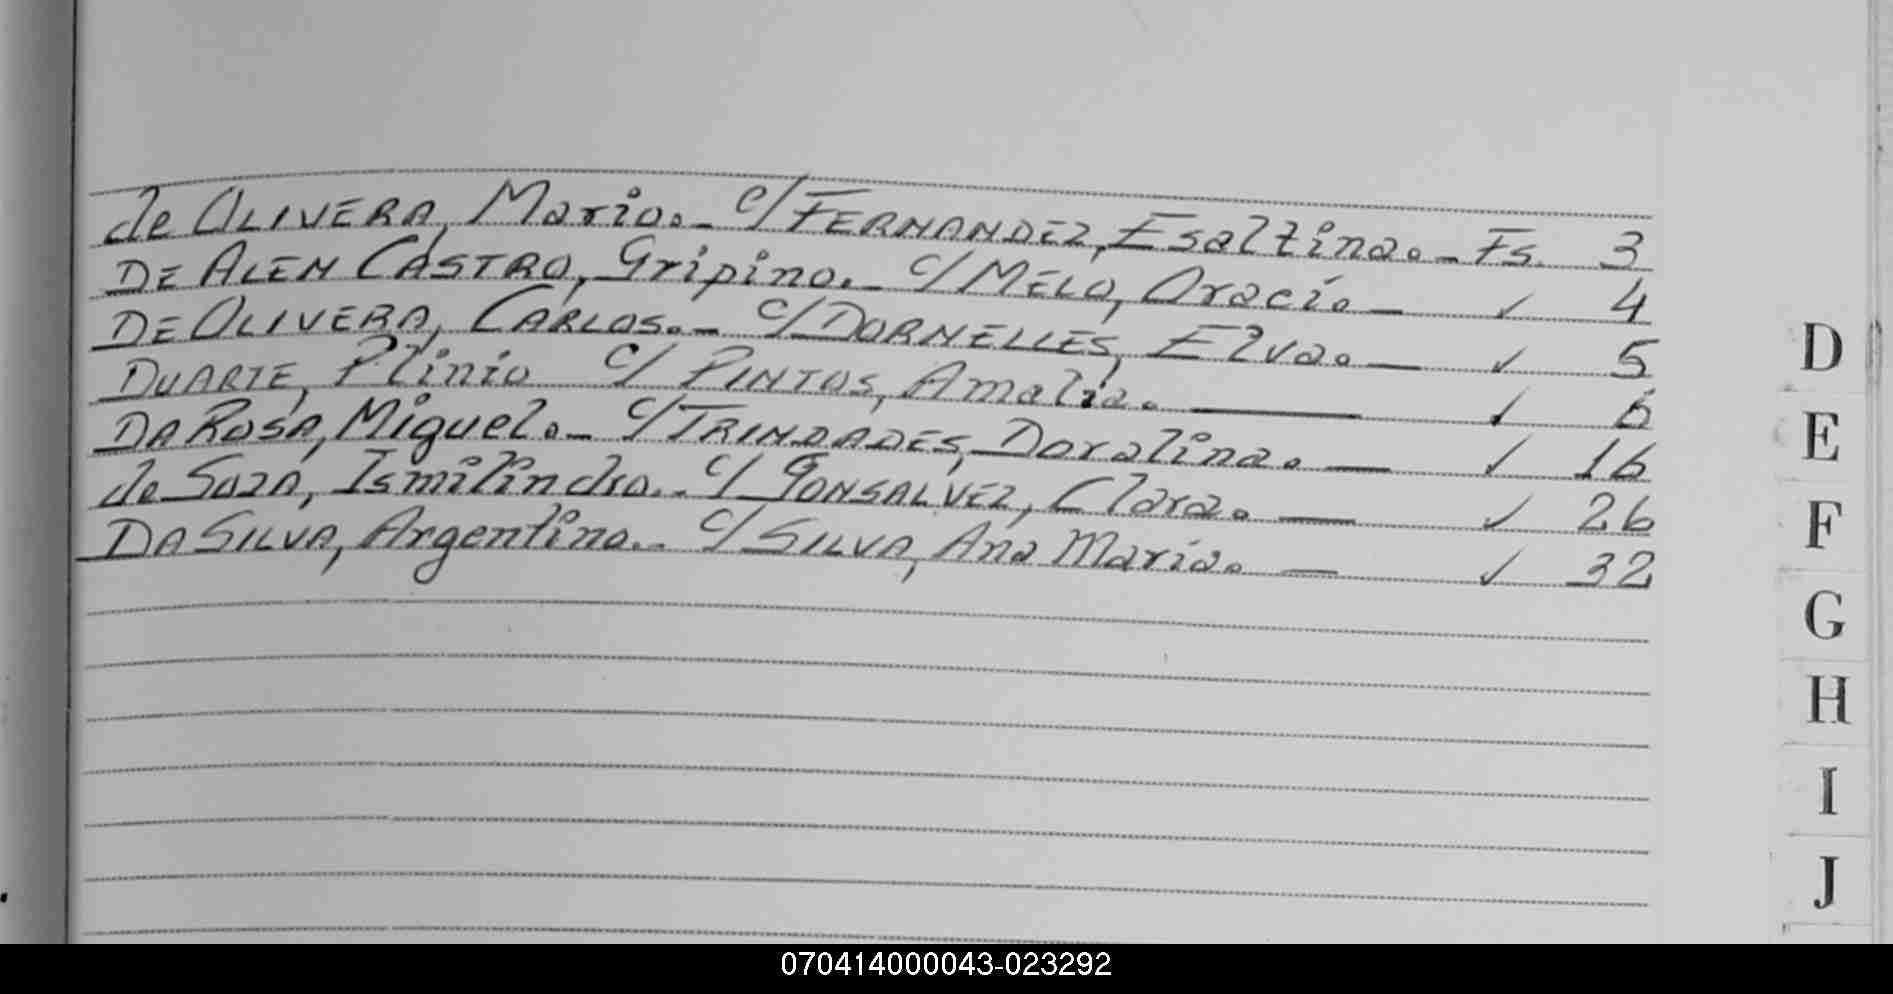 de OLIVERA, Mario.- c/ FERNANDEZ, Esaltina.- Fs. 3
DE ALEN CASTRO, Gripino.- c/ MELO, Oracio — ✓ 4
DE OLIVERA, CARLOS.- c/ DORNELLES, Elva. — ✓ 5
DUARTE, Plinio c/ PINTOS, Amalia. — ✓ 6
DA ROSA, Miguel.- c/ TRINDADES, Doralina. — ✓ 16
de SOZA, Ismilindra.- c/ GONSALVEZ, Clara. — ✓ 26
DA SILVA, Argentino.- c/ SILVA, Ana Maria. — ✓ 32
D
E
F
G
H
I
J
070414000043-023292